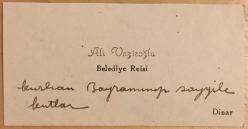 Ali Vezireoğlu
Belediye Reisi
Kurban Bayramınızı saygile
kutlar
Dinar